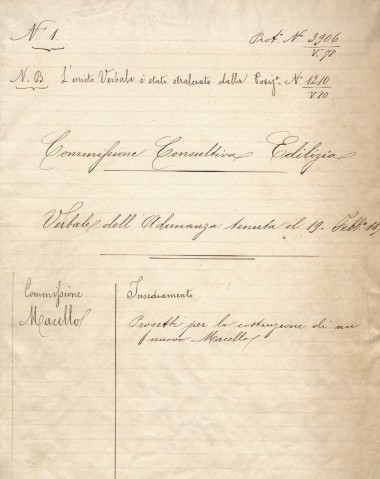 N 1
Prot. N 3906
N. B L'unito Verbale è stato stralciato dalla Posiz.e N 1210
Commissione Consultiva Edilizia
Verbale dell Adunanza tenuta il 19. Febb.o
Commissione
Macello
Insediamento
Progetti per la costruzione di un
nuovo Macello